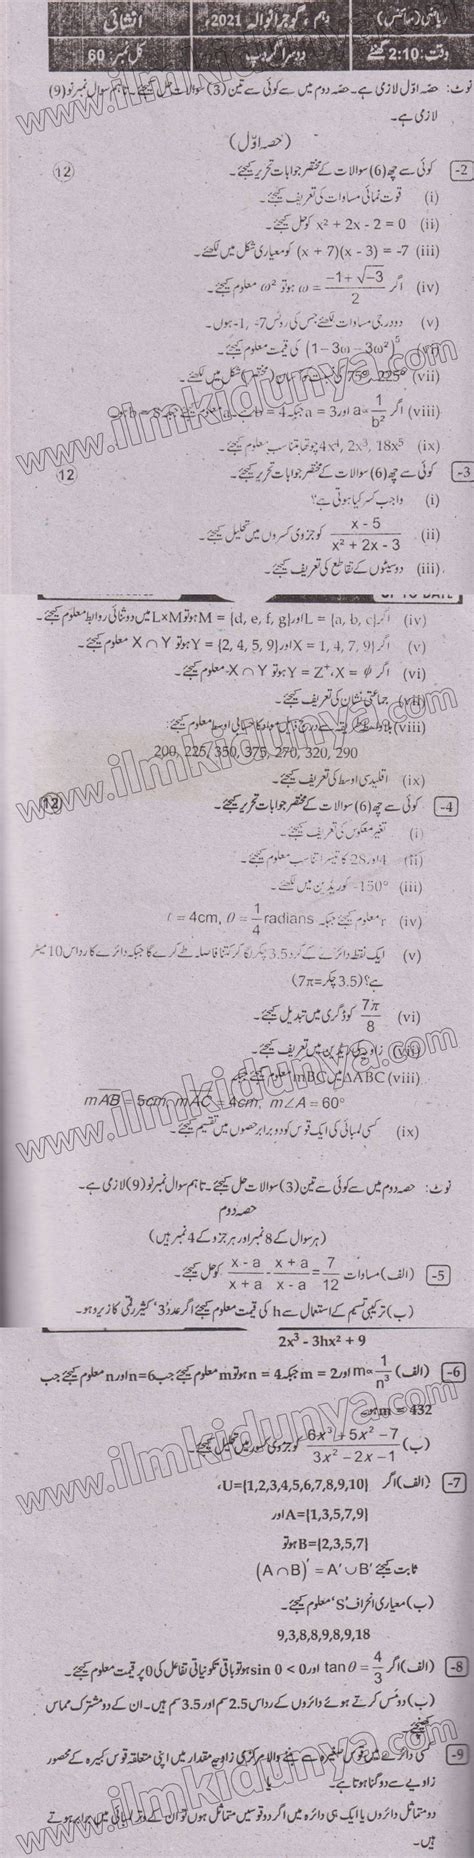 ریاضی (سائنس) دہم، گوجرانوالہ 2021ء انشائی
وقت: 2:10 گھنٹے دوسرا گروپ کل نمبر: 60
نوٹ: حصہ اوّل لازمی ہے۔ حصہ دوم میں سے کوئی سے تین (3) سوالات حل کیجئے۔ تاہم سوال نمبر نو (9)
لازمی ہے۔
(حصہ اوّل)
-2 کوئی سے چھ (6) سوالات کے مختصر جوابات تحریر کیجئے۔ 12
(i) قوت نمائی مساوات کی تعریف کیجئے۔
(ii) x² + 2x - 2 = 0 کو حل کیجئے۔
(iii) (x + 7)(x - 3) = -7 کو معیاری شکل میں لکھئے۔
(iv) اگر ω = (-1+√-3)/2 ہو تو ω² معلوم کیجئے۔
(v) دو درجی مساوات لکھئے جس کی روٹس -1, -7 ہوں۔
(vi) (1-3ω-3ω²)⁵ کی قیمت معلوم کیجئے۔
(vii) 75°, 225° کی نسبت کو آسان (مختصر) شکل میں لکھئے۔
(viii) اگر a ∝ 1/b² اور a = 3 جبکہ b = 4 معلوم کیجئے جبکہ b = 8 ہو
(ix) 4x⁴, 2x³, 18x⁵ چوتھا متناسب معلوم کیجئے۔
-3 کوئی سے چھ (6) سوالات کے مختصر جوابات تحریر کیجئے۔ 12
(i) واجب کسر کیا ہوتی ہے؟
(ii) (x - 5)/(x² + 2x - 3) کو جزوی کسروں میں تحلیل کیجئے۔
(iii) دو سیٹوں کے تقاطع کی تعریف کیجئے۔
UP TO DATE
(iv) اگر L = {a, b, c} اور M = {d, e, f, g} ہو تو L×M میں دو ثنائی روابط معلوم کیجئے۔
(v) اگر X = 1, 4, 7, 9} اور Y = {2, 4, 5, 9} ہو تو X ∩ Y معلوم کیجئے۔
(vi) اگر X = φ، Y = Z⁺ ہو تو X ∩ Y معلوم کیجئے۔
(vii) جماعتی نشان کی تعریف کیجئے۔
(viii) بلاواسطہ طریقہ سے درج ذیل مواد کا حسابی اوسط معلوم کیجئے:
200, 225, 350, 375, 270, 320, 290
(ix) اقلیدسی اوسط کی تعریف کیجئے۔
-4 کوئی سے چھ (6) سوالات کے مختصر جوابات تحریر کیجئے۔ 12
(i) تغیر معکوس کی تعریف کیجئے۔
(ii) 4 اور 28 کا تیسرا تناسب معلوم کیجئے۔
(iii) -150° کو ریڈین میں لکھئے۔
(iv) r معلوم کیجئے جبکہ ℓ = 4cm, θ = 1/4 radians
(v) ایک نقطہ دائرے کے گرد 3.5 چکر لگا کر کتنا فاصلہ طے کرے گا جبکہ دائرے کا رداس 10 میٹر
ہے؟ (3.5 چکر = 7π)
(vi) 7π/8 کو ڈگری میں تبدیل کیجئے۔
(vii) زاویہ کی ریڈین میں تعریف کیجئے۔
(viii) ΔABC میں mBC معلوم کیجئے جبکہ
mAB = 5cm, mAC = 4cm, m∠A = 60°
(ix) کسی لمبائی کی ایک قوس کو دو برابر حصوں میں تقسیم کیجئے۔
نوٹ: حصہ دوم میں سے کوئی سے تین (3) سوالات حل کیجئے۔ تاہم سوال نمبر نو (9) لازمی ہے۔
حصہ دوم
(ہر سوال کے 8 نمبر اور ہر جزو کے 4 نمبر ہیں)
-5 (الف) مساوات (x-a)/(x+a) - (x+a)/(x-a) = 7/12 کو حل کیجئے۔
(ب) ترکیبی تقسیم کے استعمال سے h کی قیمت معلوم کیجئے اگر عدد '3' کثیر رقمی کا زیرو ہو۔
2x³ - 3hx² + 9
-6 (الف) m ∝ 1/n³ اور m = 2 جبکہ n = 4 ہو تو m معلوم کیجئے جب n=6 اور n معلوم کیجئے جب
m = 432 ہو۔
(ب) (6x³+5x²-7)/(3x²-2x-1) کو جزوی کسور میں تحلیل کیجئے۔
-7 (الف) اگر U={1,2,3,4,5,6,7,8,9,10}،
A={1,3,5,7,9} اور
B={2,3,5,7} ہو تو
ثابت کیجئے (A∩B)′ = A′∪B′
(ب) معیاری انحراف 'S' معلوم کیجئے۔
9,3,8,8,9,8,9,18
-8 (الف) اگر tanθ = 4/3 اور sin θ < 0 ہو تو باقی تکونیاتی تفاعل کی θ پر قیمت معلوم کیجئے۔
(ب) دو مَس کرتے ہوئے دائروں کے رداس 2.5 سم اور 3.5 سم ہیں۔ ان کے دو مشترک مماس
کھینچئے۔
-9 کسی دائرے میں قوس صغیرہ سے بننے والا مرکزی زاویہ مقدار میں اپنی متعلقہ قوس کبیرہ کے محصور
زاویے سے دو گنا ہوتا ہے۔ یا
دو متماثل دائروں یا ایک ہی دائرہ میں اگر دو قوسیں متماثل ہوں تو ان کے وتر لمبائی میں برابر ہوتے
ہیں۔
www.ilmkidunya.com
www.ilmkidunya.com
www.ilmkidunya.com
www.ilmkidunya.com
www.ilmkidunya.com
www.ilmkidunya.com